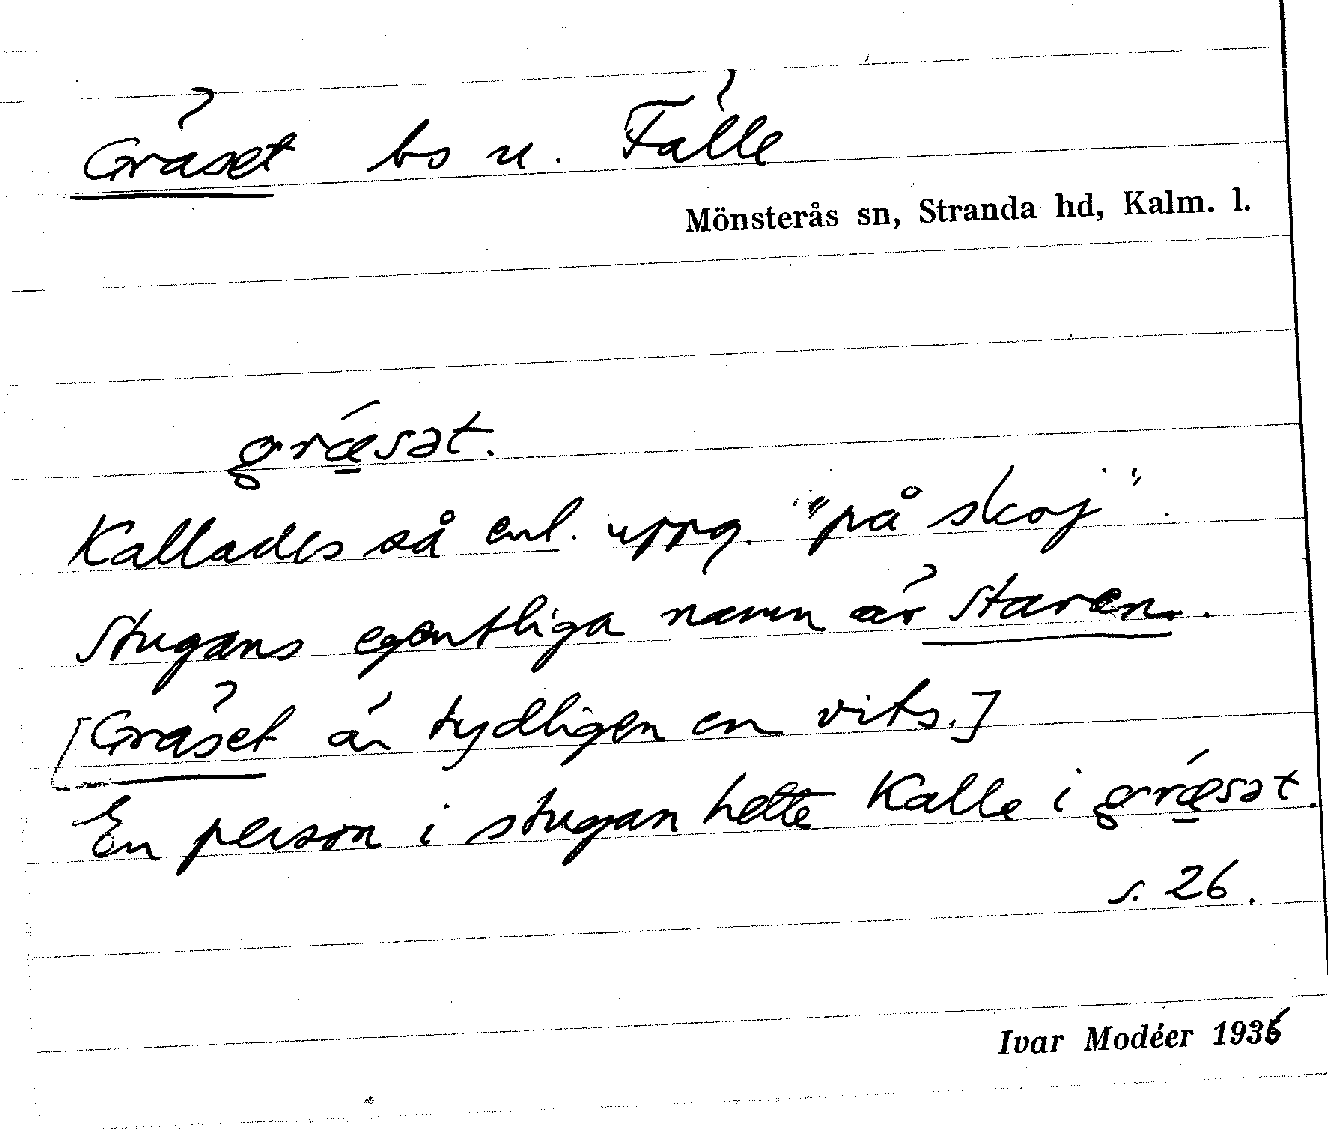 Gräset bs u. Fälle
Mönsterås sn, Stranda hd, Kalm. l.
grǽ̱sət.
Kallades så enl. uppg. "på skoj".
Stugans egentliga namn är Staren.
[Gräset är tydligen en vits.]
En person i stugan hette Kalle i grǽ̱sət.
s. 26.
Ivar Modéer 1936